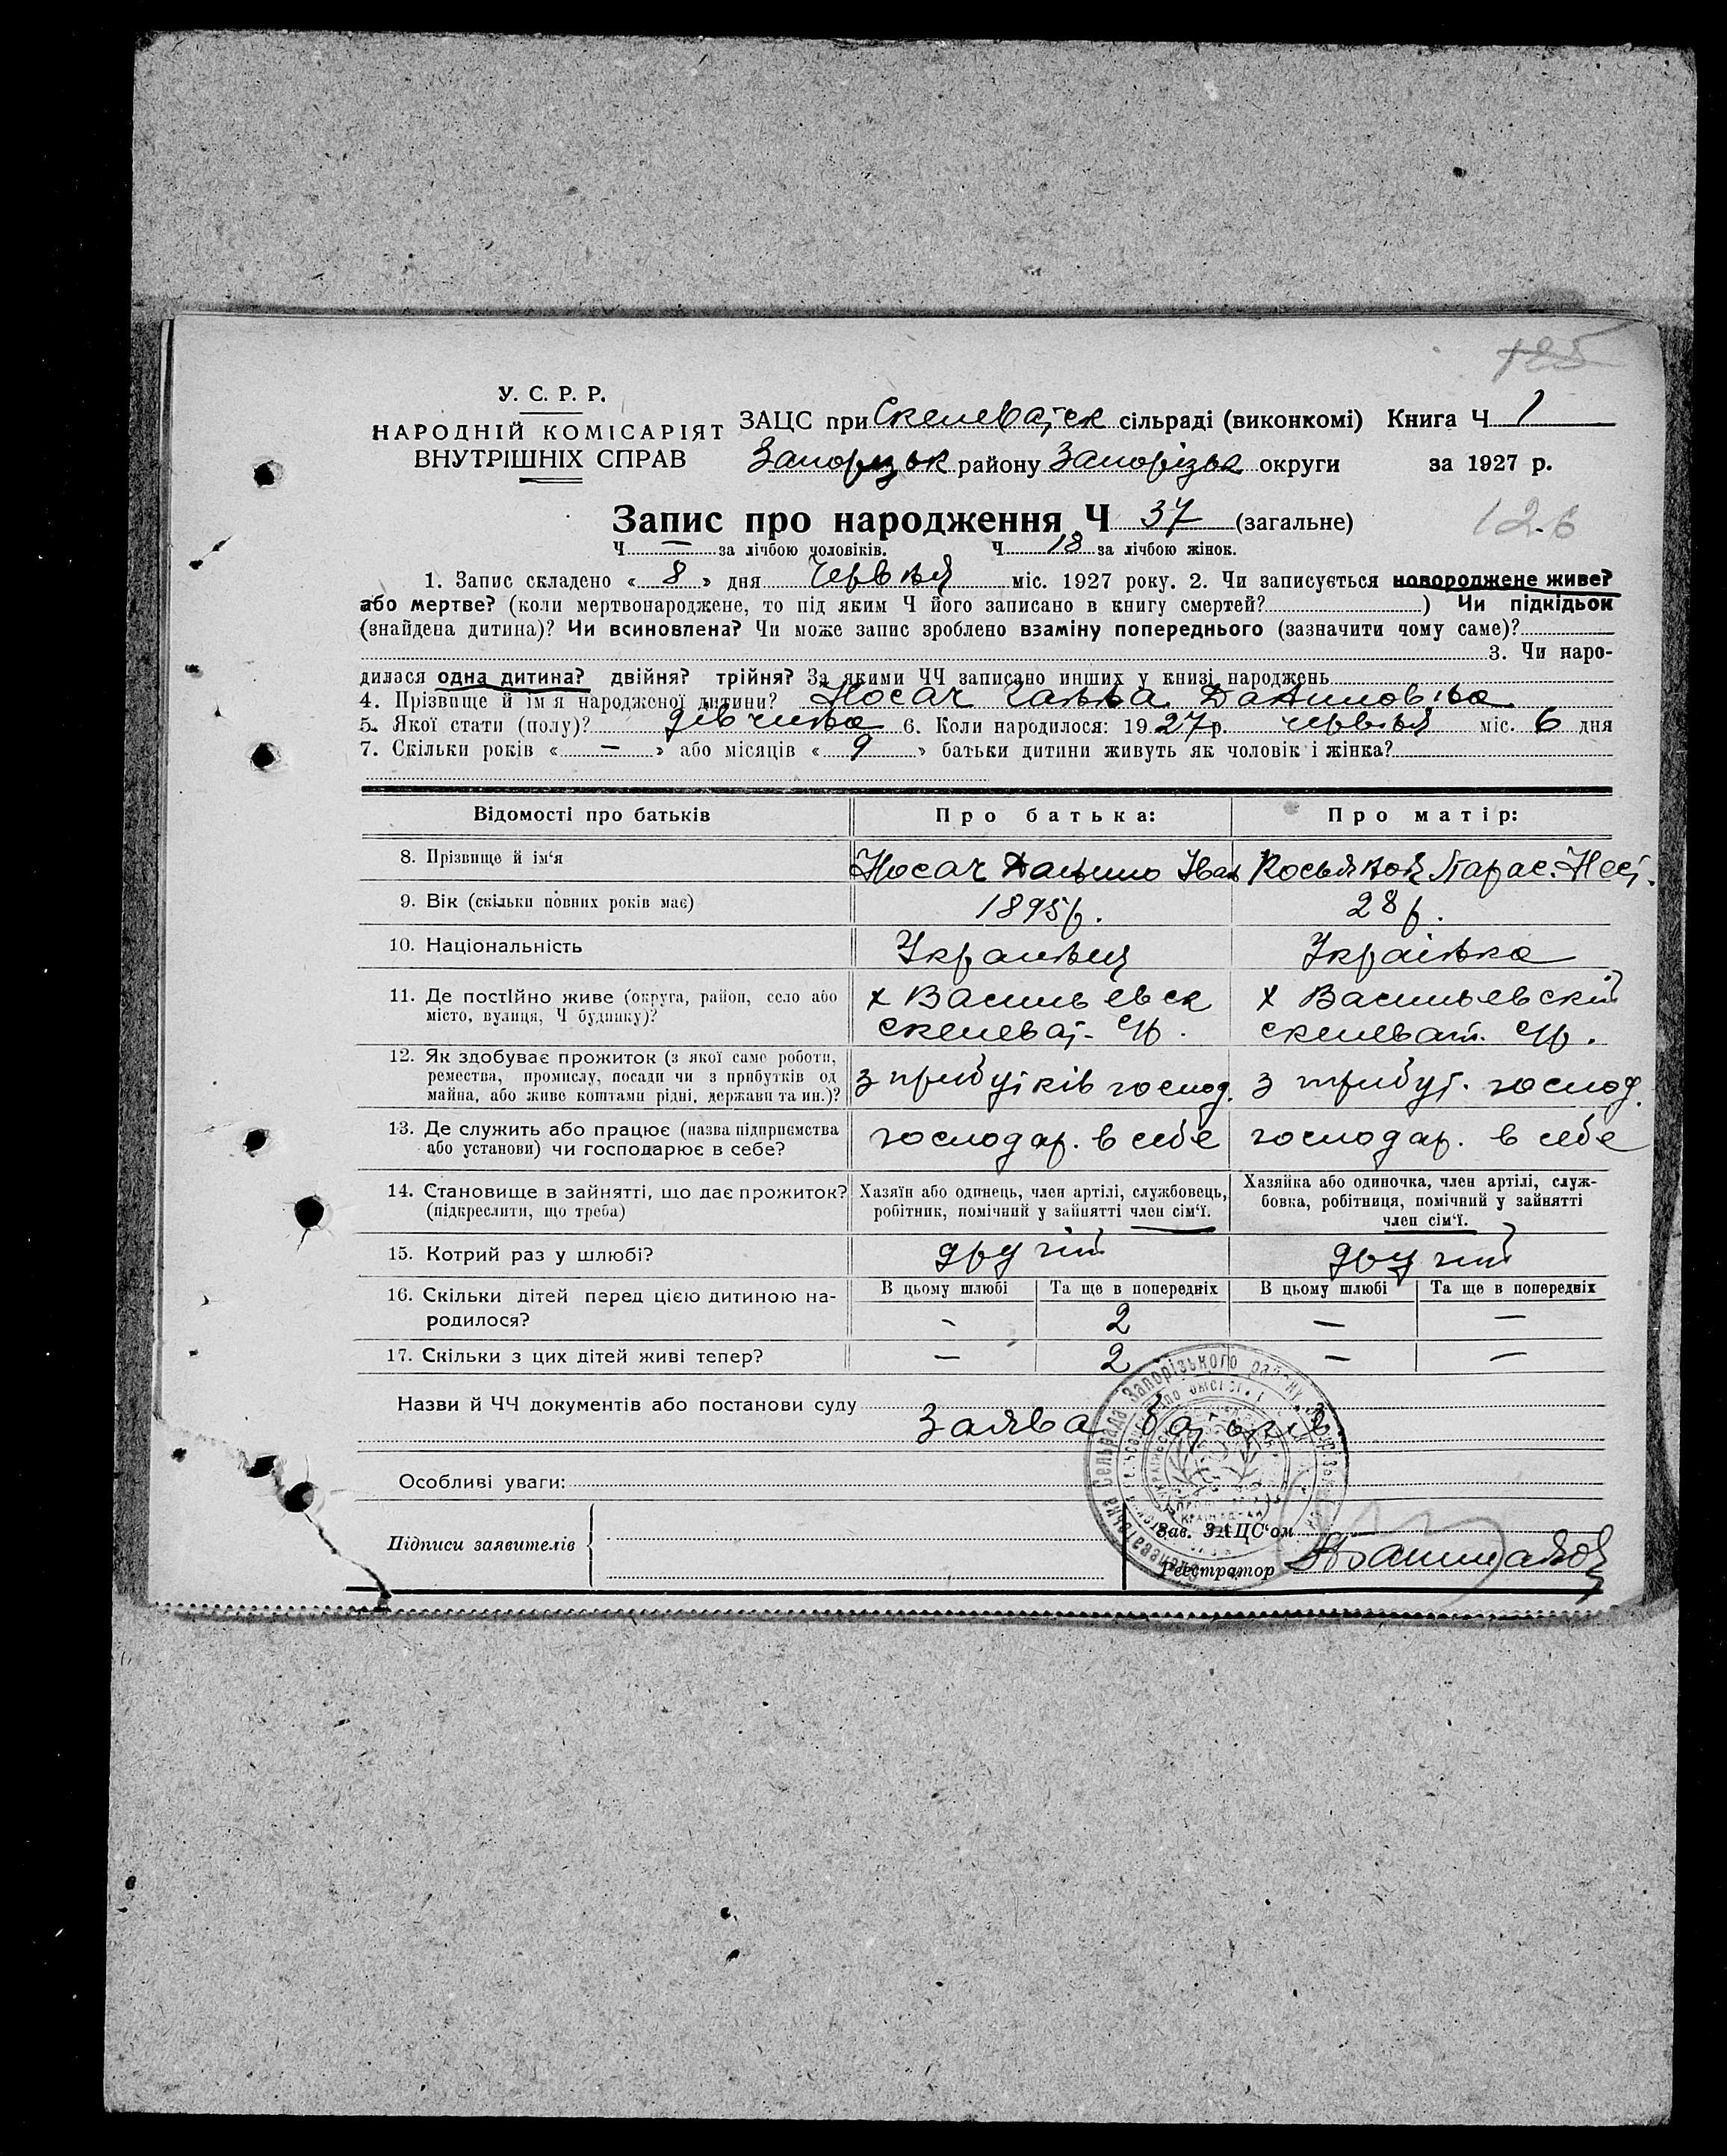 125
У. С. Р. Р.
НАРОДНІЙ КОМІСАРІЯТ
ВНУТРІШНІХ СПРАВ
ЗАЦС при Скелеватск сільраді (виконкомі) Книга Ч 1
Запорізьк району Запорізьк округи за 1927 р.
Запис про народження Ч 37 (загальне)
126
Ч — за лічбою чоловіків. Ч 18 за лічбою жінок.
1. Запис складено « 8 » дня червня міс. 1927 року. 2. Чи записується новороджене живе?
або мертве? (коли мертвонароджене, то під яким Ч його записано в книгу смертей? ) Чи підкідьок
(знайдена дитина)? Чи всиновлена? Чи може запис зроблено взаміну попереднього (зазначити чому саме)?
3. Чи наро-
дилася одна дитина? двійня? трійня? За якими ЧЧ записано инших у книзі народжень
4. Прізвище й ім'я народженої дитини? Носач Галька Даниловіна
5. Якої стати (полу)? дівчина 6. Коли народилося: 1927 р. червня міс. 6 дня
7. Скільки років « — » або місяців « 9 » батьки дитини живуть як чоловік і жінка?
Відомості про батьків Про батька: Про матір:
8. Прізвище й ім'я Носач Данило Іван Парас. Нест.
9. Вік (скільки повних років має) 1895р. 28р.
10. Національність Украинец Украінка
11. Де постійно живе (округа, район, село або
місто, вулиця, Ч будинку)?
х Васильевск
скелеват. с/р.
х Васильевскій
скелеват. с/р.
12. Як здобуває прожиток (з якої саме роботи,
ремества, промислу, посади чи з прибутків од
майна, або живе коштами рідні, держави та ин.)?
з прибутків господ. з прибут. господ.
13. Де служить або працює (назва підприємства
або установи) чи господарює в себе?
господар. в себе господар. в себе
14. Становище в зайнятті, що дає прожиток?
(підкреслити, що треба)
Хазяїн або одинець, член артілі, службовець,
робітник, помічний у зайнятті член сім'ї.
Хазяйка або одиночка, член артілі, служ-
бовка, робітниця, помічний у зайнятті
член сім'ї.
15. Котрий раз у шлюбі? другий другий
В цьому шлюбі Та ще в попередніх В цьому шлюбі Та ще в попередніх
16. Скільки дітей перед цією дитиною на-
родилося?
- 2 — —
17. Скільки з цих дітей живі тепер? — 2 — —
Назви й ЧЧ документів або постанови суду
Заява батьків
Особливі уваги:
Підписи заявителів
Зав. ЗАЦС'ом
Реєстратор
Сельрада Запорізького району